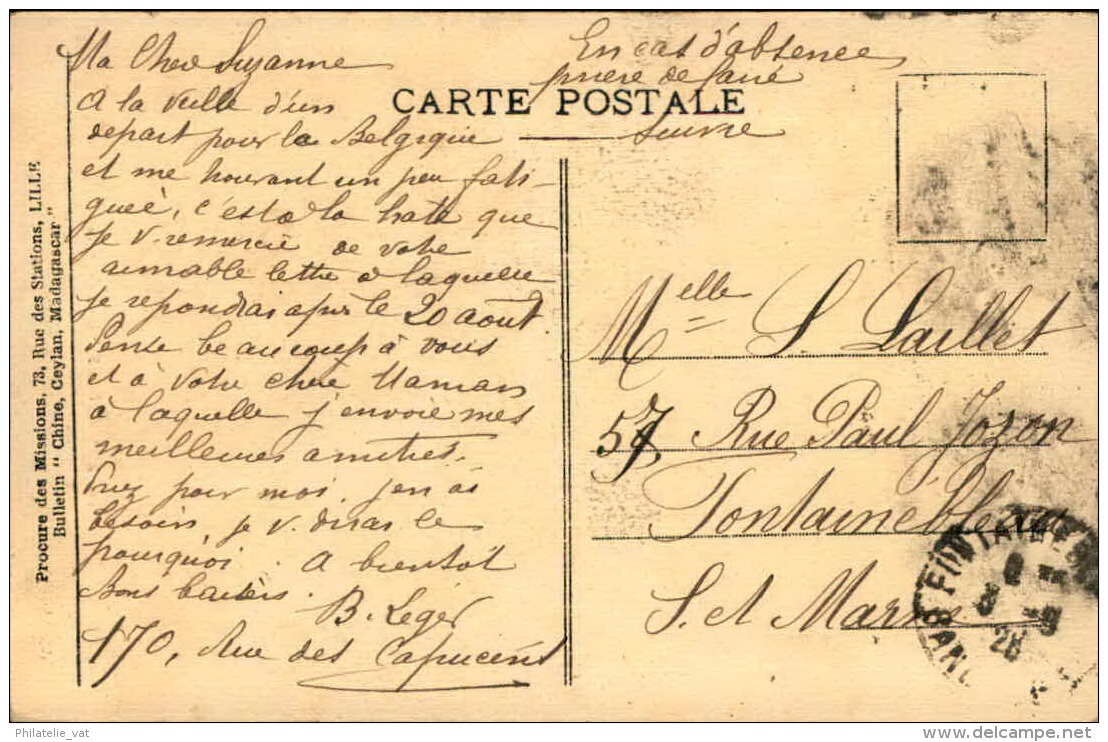 Ma Cher Suzanne
A la veille d'un
depart pour la Belgique
et me trouvant un peu fati-
gueé, c'est a la hate que
je v. remercie de votre
aimable lettre a laquelle
je repondrai apres le 20 août.
Pense beaucoup à vous
et à votre chere Maman
à laquelle j'envoie mes
meilleures amities.
Priez pour moi. j'en ai
besoin, je v. dirai le
pourquoi. A bientôt
Bons baisers.
B. Leger
170, Rue des Capucins
En cas d'absence
priere de faire
suivre
CARTE POSTALE
Melle S. Laillet
57, Rue Paul Jozon
Fontainebleau
S. et Marne
FONTAINEBLEAU
28
Procure des Missions, 73, Rue des Stations, LILLE
Bulletin " Chine, Ceylan, Madagascar "
Philatelie_vat
delcampe.net